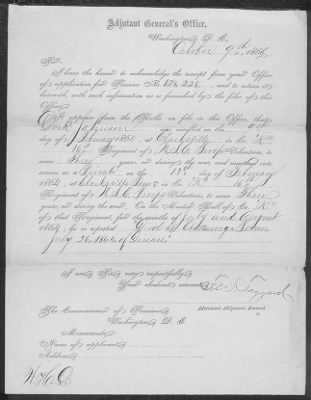 Adjutant General's Office,
Washington, D. C.
October 9th, 1866
Sir:
I have the honor to acknowledge the receipt from your Office
of application for Pension No. 128.228, and to return it
herewith, with such information as is furnished by the files of this
Office.
It appears from the Rolls on file in this Office, that
Johnson was enrolled on the
day of February 1864, at Clarksville in Co. "K"
16th Regiment of U.S.C. Troops Volunteers, to
serve Three years, or during the war, and mustered into
service as a Private on the 12th day of February
1864, at Clarksville Tenn, in Co. "K" 16
Regiment of U.S.C. Troops Volunteers, to serve Three
years, or during the war. On the Muster Roll of Co. "K"
of that Regiment, for the months of July and August
1864, he is reported Died at Chattanooga Tenn
July 26, 1864 of Disease
I am, Sir, very respectfully,
Your obedient servant,
Assistant Adjutant General
The Commissioner of Pensions
Washington, D. C.
Memoranda:
Name of applicant,
Address,